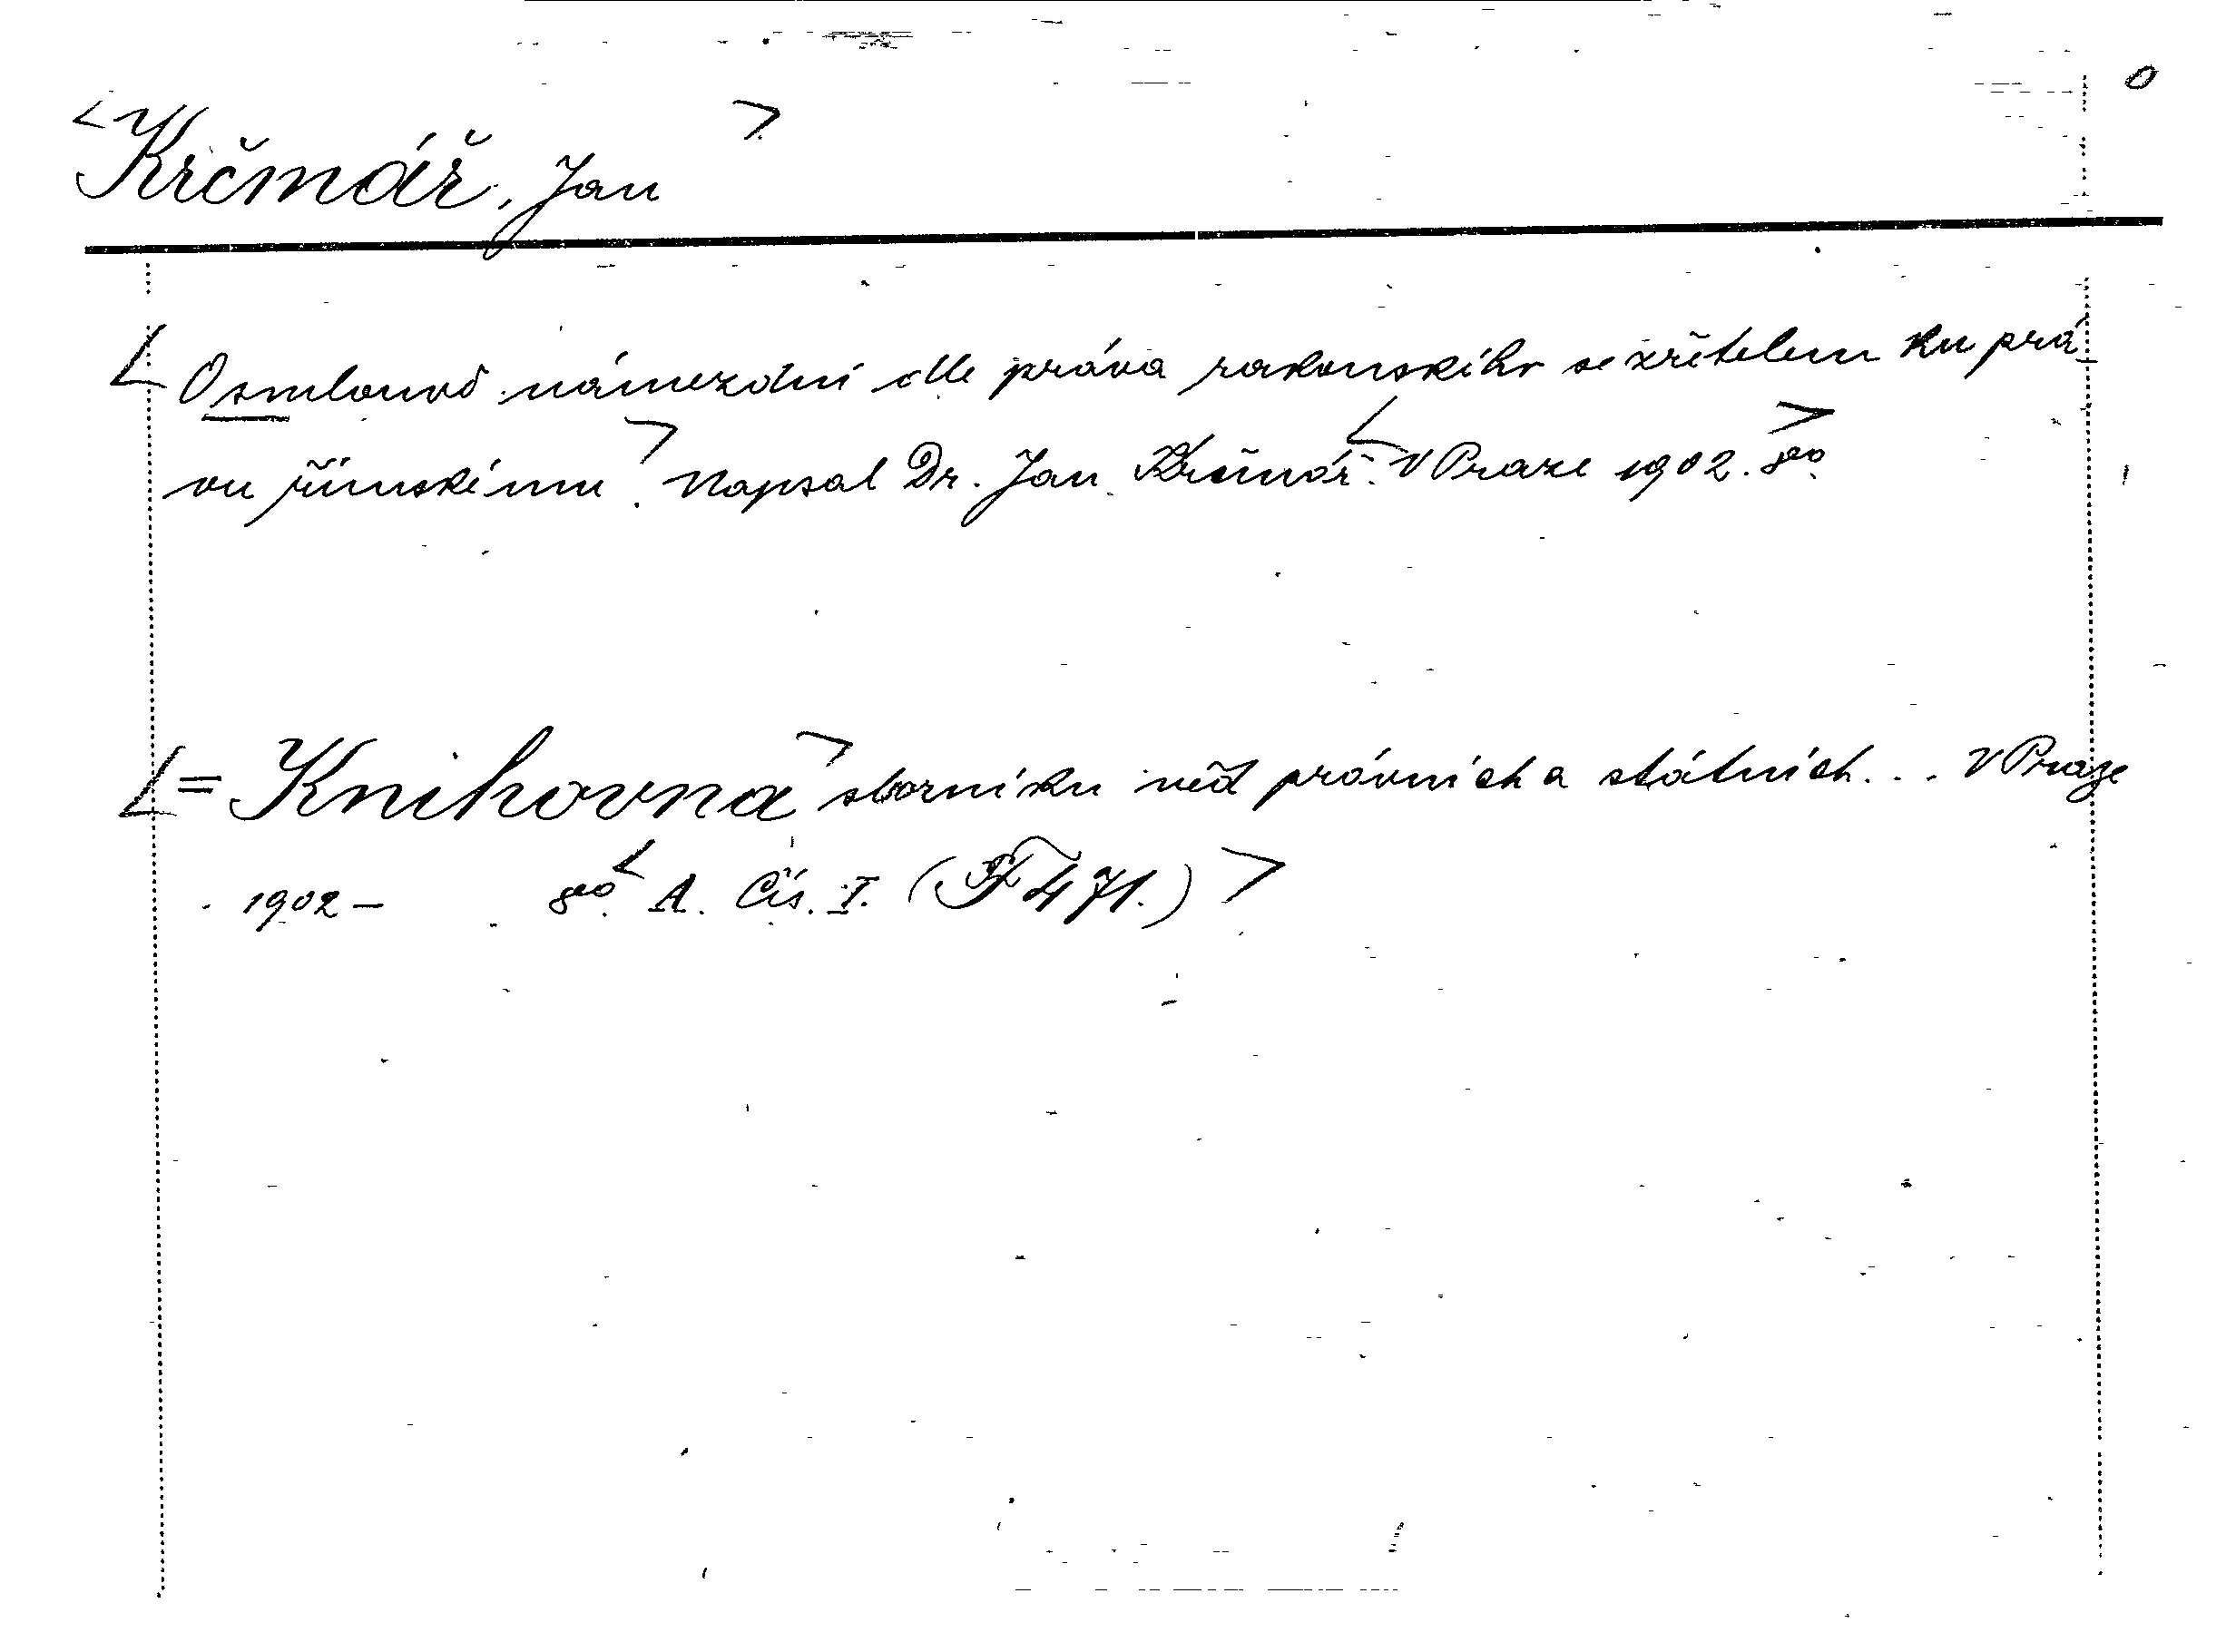 <Krčmář, Jan>
O
<O smlouvě námezdní dle práva rakouského se zřetelem ku prá-
vu římskému>. Napsal Dr. Jan Krčmář. <V Praze 1902. 8vo.>
<= Knihovna> sborníku věd právních a státních... V Praze
1902 – 8vo. <A. Čís. I. ( 471.)>